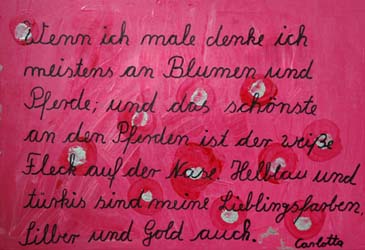 Wenn ich male denke ich
meistens an Blumen und
Pferde; und das schönste
an den Pferden ist der weiße
Fleck auf der Nase. Helblau und
türkis sind meine Lieblingsfarben,
Silber und Gold auch.
Carlotta